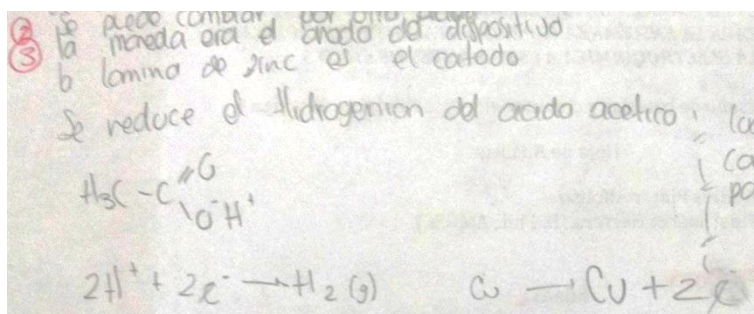 ② Se puede cambiar por otro
③ la moneda era el anodo del dispositivo
b lamina de zinc es el catodo
Se reduce el Hidrogenion del acido acetico,
H3C - C //O \O- H+
2H+ + 2e- → H2 (g) Cu → Cu + 2e-